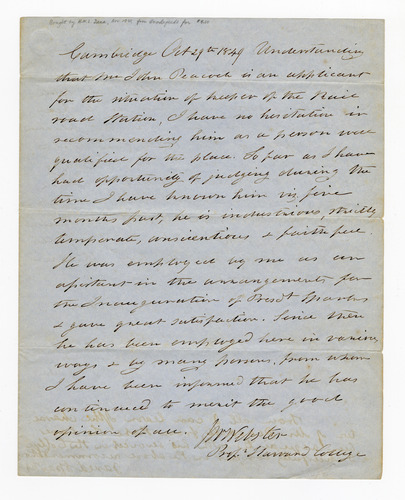 Bought by
Cambridge Oct 29th 1849 Understanding
that Mr John Peacock is an applicant
for the situation of keeper of the Rail
road Station, I have no hesitation in
recommending him as a person well
qualified for the place. So far as I have
had opportunity of judging during the
time I have known him viz, five
months past, he is industrious, strictly
temperate, conscientious & faithful.
He was employed by me as an
assistant in the arrangements for
the Inauguration of Presdt Sparks
& gave great satisfaction. Since then
he has been employed here in various
ways & by many persons, from whom
I have been informed that he has
continued to merit the good
opinion of all. JW Webster
Prof. Harvard College